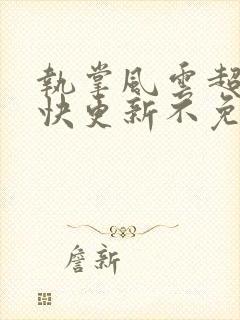 執掌風雲超
快更新不免
詹新